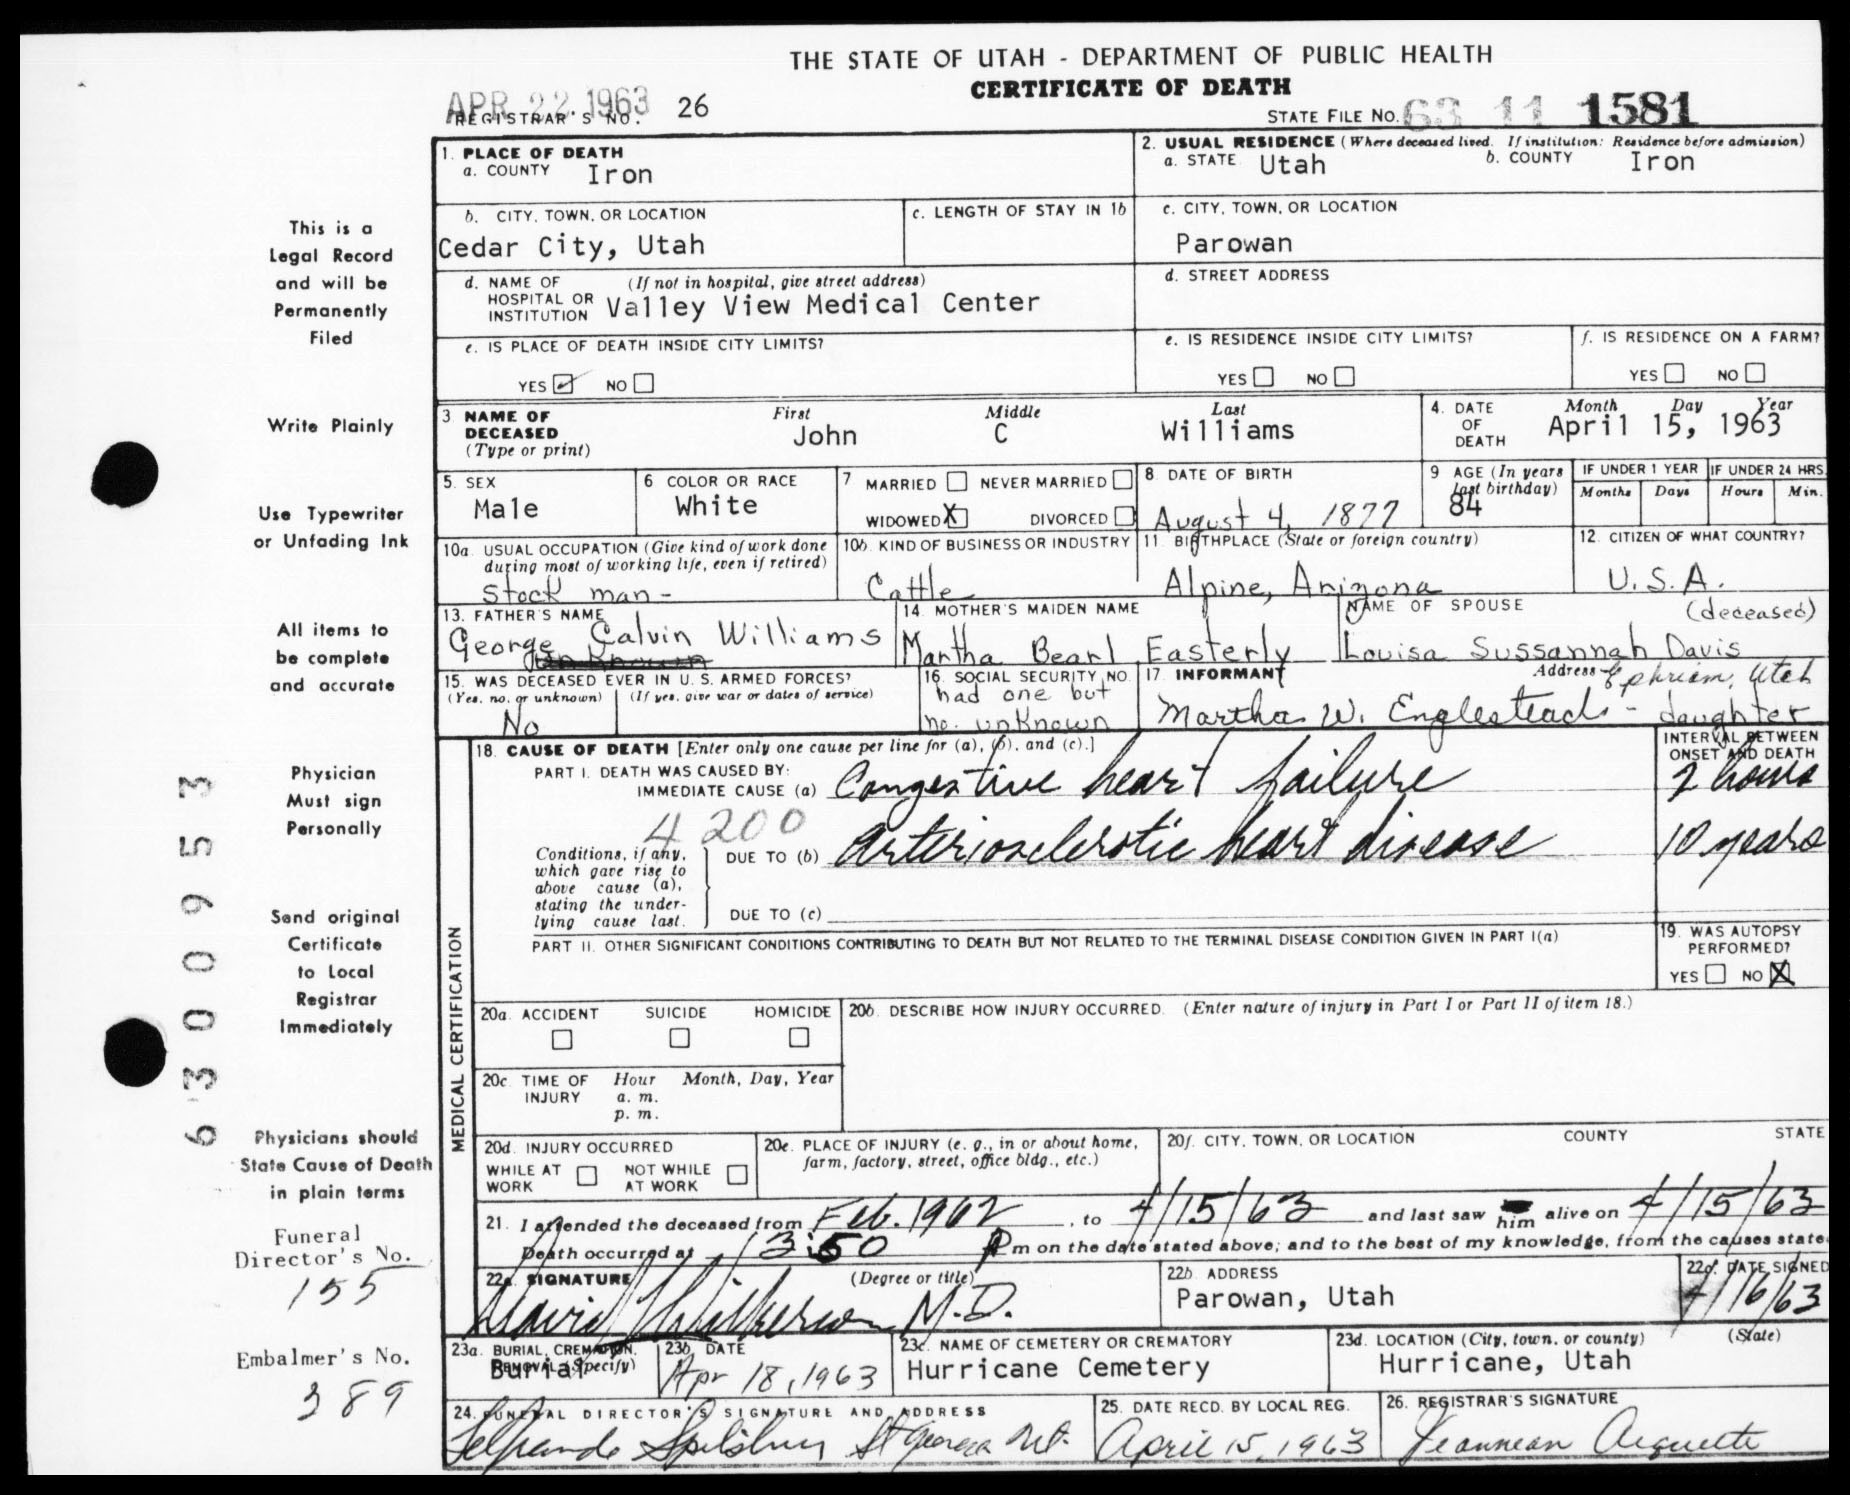 THE STATE OF UTAH - DEPARTMENT OF PUBLIC HEALTH
CERTIFICATE OF DEATH
APR 22 1963
REGISTRAR'S NO. 26
STATE FILE NO. 63 11 1581
This is a
Legal Record
and will be
Permanently
Filed
Write Plainly
Use Typewriter
or Unfading Ink
All items to
be complete
and accurate
Physician
Must sign
Personally
Send original
Certificate
to Local
Registrar
Immediately
Physicians should
State Cause of Death
in plain terms
Funeral
Director's No.
155
Embalmer's No.
389
6 3 0 0 9 5 3
1. PLACE OF DEATH
a. COUNTY Iron
2. USUAL RESIDENCE (Where deceased lived. If institution: Residence before admission)
a. STATE Utah b. COUNTY Iron
b. CITY, TOWN, OR LOCATION
Cedar City, Utah
c. LENGTH OF STAY IN 1b
c. CITY, TOWN, OR LOCATION
Parowan
d. NAME OF HOSPITAL OR INSTITUTION (If not in hospital, give street address)
Valley View Medical Center
d. STREET ADDRESS
e. IS PLACE OF DEATH INSIDE CITY LIMITS?
YES NO
e. IS RESIDENCE INSIDE CITY LIMITS?
YES NO
f. IS RESIDENCE ON A FARM?
YES NO
3 NAME OF DECEASED (Type or print)
First Middle Last
John C Williams
4. DATE OF DEATH
Month Day Year
April 15, 1963
5. SEX
Male
6 COLOR OR RACE
White
7 MARRIED NEVER MARRIED
WIDOWED X DIVORCED
8 DATE OF BIRTH
August 4, 1877
9 AGE (In years last birthday)
84
IF UNDER 1 YEAR
Months Days
IF UNDER 24 HRS.
Hours Min.
10a. USUAL OCCUPATION (Give kind of work done
during most of working life, even if retired)
Stock man -
10b. KIND OF BUSINESS OR INDUSTRY
Cattle
11. BIRTHPLACE (State or foreign country)
Alpine, Arizona
12. CITIZEN OF WHAT COUNTRY?
U.S.A.
13. FATHER'S NAME
George Calvin Williams
unknown
14. MOTHER'S MAIDEN NAME
Martha Bearl Easterly
NAME OF SPOUSE
(deceased)
Louisa Sussannah Davis
15. WAS DECEASED EVER IN U. S. ARMED FORCES?
(Yes, no, or unknown) (If yes, give war or dates of service)
No
16. SOCIAL SECURITY NO.
had one but
no. unknown
17. INFORMANT Address Ephriam, Utah
Martha W. Englestead - daughter
MEDICAL CERTIFICATION
18. CAUSE OF DEATH [Enter only one cause per line for (a), (b), and (c).]
INTERVAL BETWEEN
ONSET AND DEATH
PART I. DEATH WAS CAUSED BY:
IMMEDIATE CAUSE (a) Congestive heart failure 2 hours
4200
Conditions, if any,
which gave rise to
above cause (a),
stating the under-
lying cause last.
DUE TO (b) Arteriosclerotic heart disease 10 years
DUE TO (c)
PART II. OTHER SIGNIFICANT CONDITIONS CONTRIBUTING TO DEATH BUT NOT RELATED TO THE TERMINAL DISEASE CONDITION GIVEN IN PART I(a)
19. WAS AUTOPSY
PERFORMED?
YES NO X
20a. ACCIDENT SUICIDE HOMICIDE
20b. DESCRIBE HOW INJURY OCCURRED. (Enter nature of injury in Part I or Part II of item 18.)
20c. TIME OF INJURY Hour Month, Day, Year
a. m.
p. m.
20d. INJURY OCCURRED
WHILE AT WORK NOT WHILE AT WORK
20e. PLACE OF INJURY (e. g., in or about home,
farm, factory, street, office bldg., etc.)
20f. CITY, TOWN, OR LOCATION COUNTY STATE
21. I attended the deceased from Feb. 1962, to 4/15/63 and last saw him alive on 4/15/63
Death occurred at 3:50 P m on the date stated above; and to the best of my knowledge, from the causes state
22a. SIGNATURE (Degree or title)
David Wilkerson M.D.
22b. ADDRESS
Parowan, Utah
22c. DATE SIGNED
4/16/63
23a. BURIAL, CREMATION, REMOVAL (Specify)
Burial
23b. DATE
Apr 18, 1963
23c. NAME OF CEMETERY OR CREMATORY
Hurricane Cemetery
23d. LOCATION (City, town, or county) (State)
Hurricane, Utah
24. FUNERAL DIRECTOR'S SIGNATURE AND ADDRESS
Spilsbury St George Ut.
25. DATE RECD. BY LOCAL REG.
April 15, 1963
26. REGISTRAR'S SIGNATURE